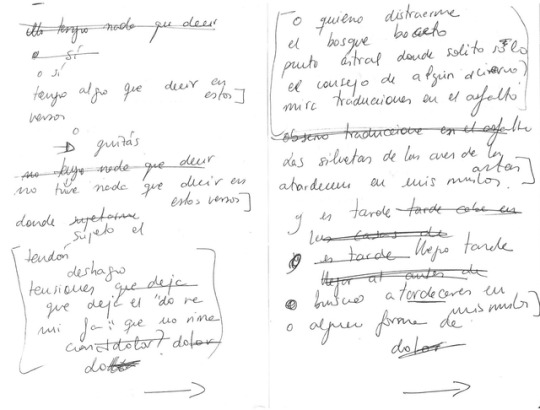 no tengo nada que decir
o sí
o sí
tengo algo que decir en
estos]
versos
o
quizás
no tengo nada que decir
no tuve nada que decir en
estos versos]
donde sujetarme
sujeto el
tendón
deshago
tensiones que deja
que deja el "do re
mi fa" que no rima
con dolor? dolor
do
o quiero distraerme
el bosque boceto
punto astral donde solito sólo
el consejo de algún
mira traducciones en el asfalto
observo traducciones en el asfalto
las siluetas de las aves de las
atardecen en mis muslos.]
y es tarde tarde cabe en
las casas de
es tarde llego tarde
llegar al antes de
busco atardeceres en
mis muslos]
o alguna forma de
dolor